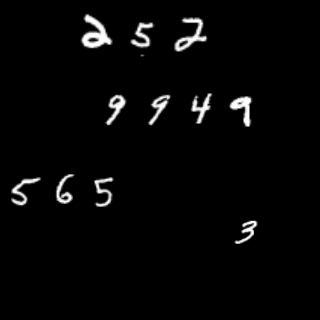 252
9949
565
3